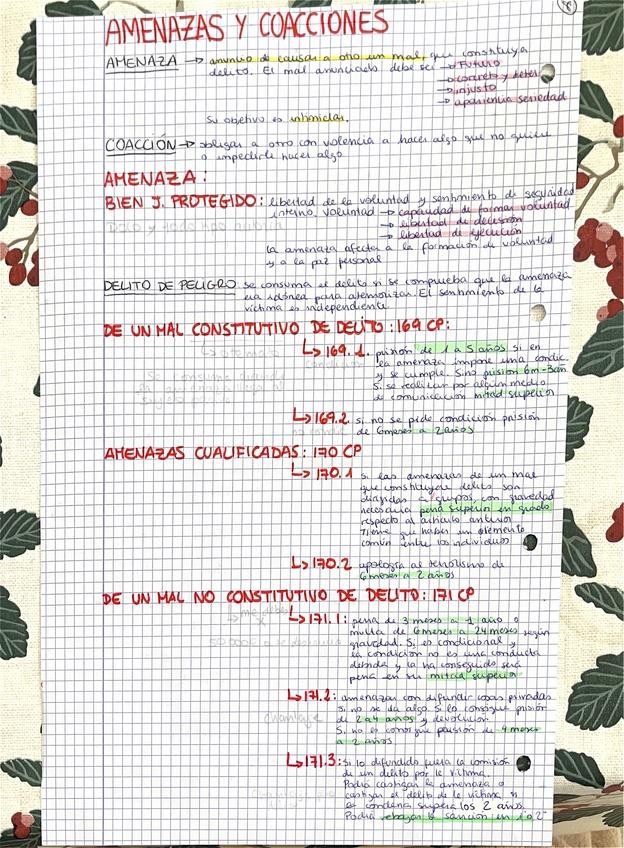 8
AMENAZAS Y COACCIONES
AMENAZA → anuncio de causar a otro un mal, que constituya
delito. El mal anunciado debe ser → Futuro
→ concreto y deter
→ injusto
→ apariencia seriedad
Su objetivo es intimidar.
COACCIÓN → obligar a otro con violencia a hacer algo que no quiere
o impedirle hacer algo
AMENAZA:
BIEN J. PROTEGIDO: libertad de la voluntad y sentimiento de seguridad
interno. Voluntad → capacidad de formar voluntad
→ libertad de decisión
→ libertad de ejecución
La amenaza afecta a la formación de voluntad
y a la paz personal
DELITO DE PELIGRO: se consuma el delito si se comprueba que la amenaza
era idónea para atemorizar. El sentimiento de la
víctima es independiente
DE UN MAL CONSTITUTIVO DE DELITO: 169 CP:
↳ 169.1. prisión de 1 a 5 años si en
la amenaza impone una condic.
y se cumple. Sino prisión 6m-3añ
Si se realizan por algún medio
de comunicación mitad superior
↳ 169.2 si no se pide condición prisión
de 6 meses a 2 años
AMENAZAS CUALIFICADAS: 170 CP
↳ 170.1 Si las amenazas de un mal
que constituyere delito son
dirigidas a grupos, con gravedad
necesaria pena superior en grado
respecto al artículo anterior
Tiene que haber un elemento
común entre los individuos
↳ 170.2 apología al terrorismo de
6 meses a 2 años
DE UN MAL NO CONSTITUTIVO DE DELITO: 171 CP
↳ 171.1: pena de 3 meses a 1 año o
multa de 6 meses a 24 meses según
gravedad. Si es condicional y
la condición no es una conducta
debida y la ha conseguido será
pena en su mitad superior
↳ 171.2: amenazar con difundir cosas privadas
si no se da algo. Si lo consigue prisión
de 2 a 4 años y devolución
Si no es consigue prisión de 4 meses
a 2 años
↳ 171.3: Si lo difundido fuera la comisión
de un delito por la víctima.
Podrá castigar la amenaza o
castigar el delito de la víctima si
la condena supera los 2 años.
Podrá rebajar la sanción en 1 o 2º